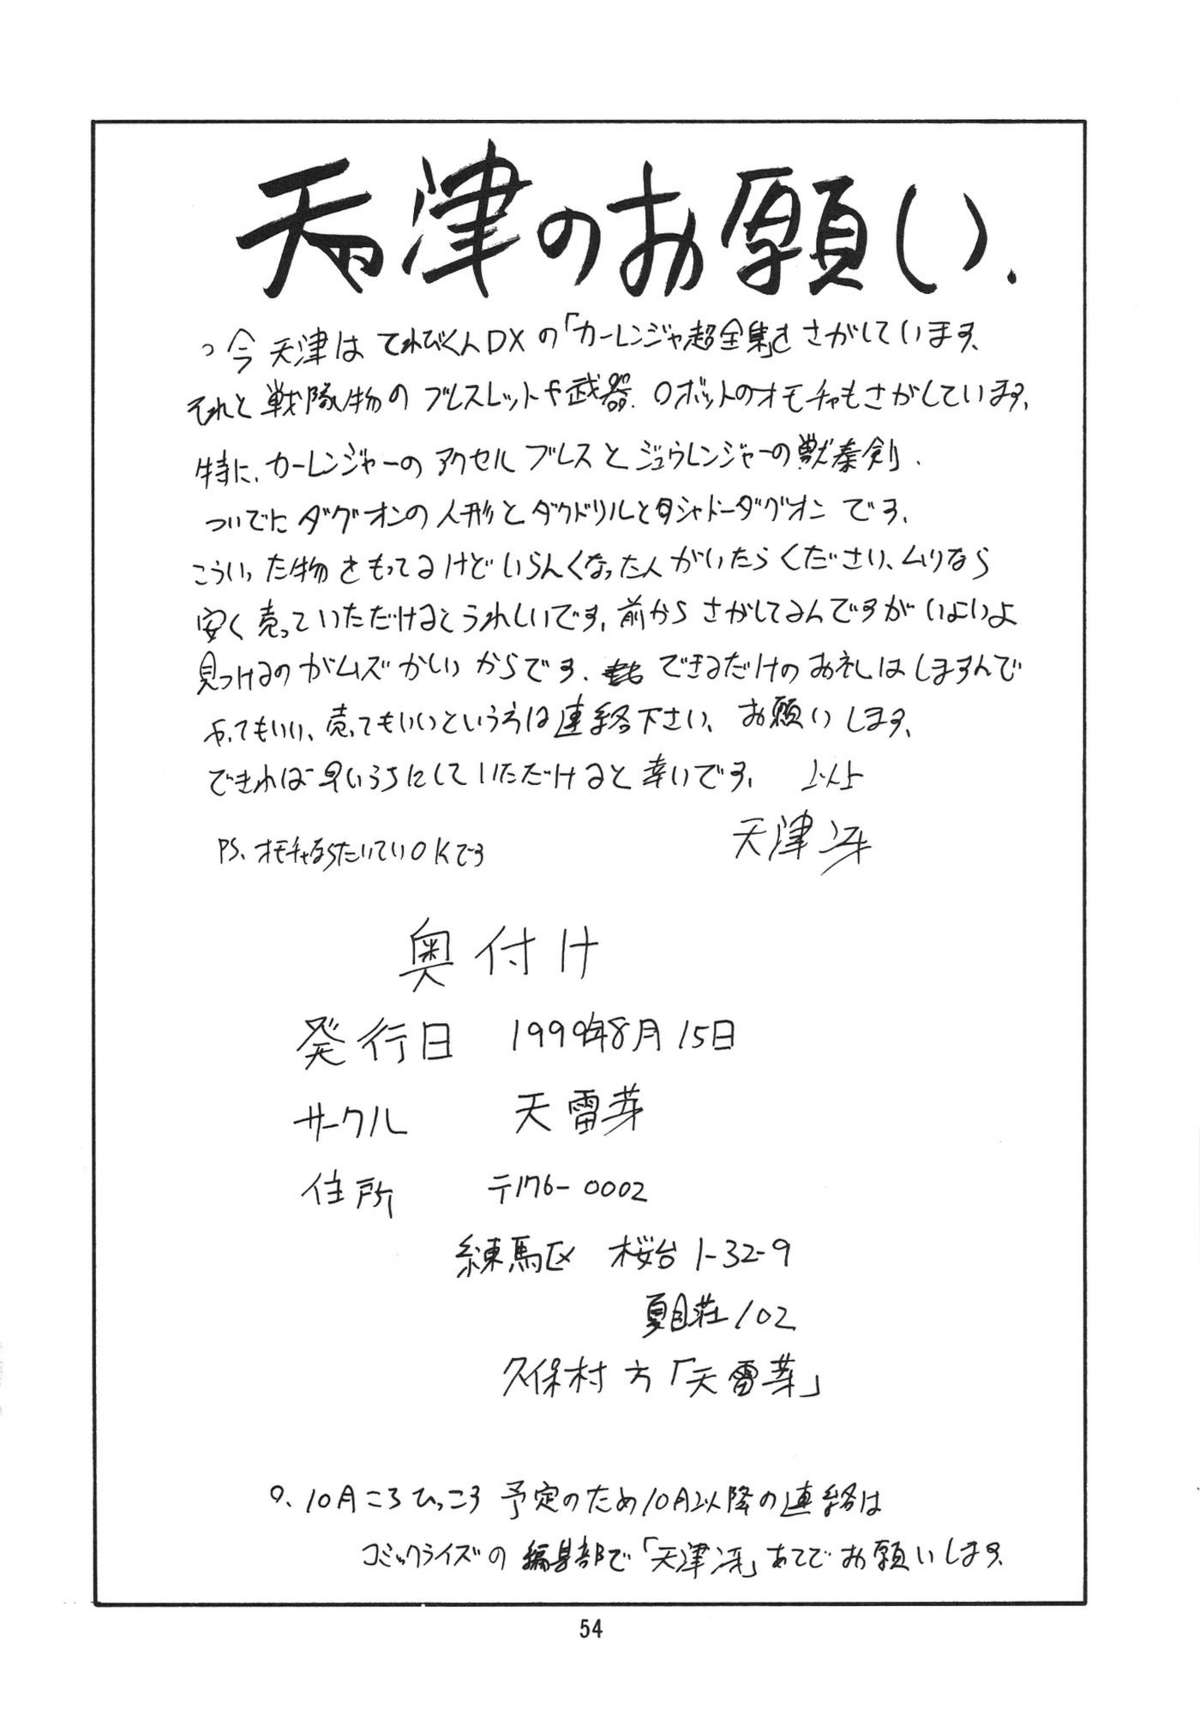 天津のお願い.
今天津はてれびくんDXの「カーレンジャ超全集」をさがしています、
それと戦隊物のブレスレットや武器、ロボットのオモチャもさがしています、
特に、カーレンジャーのアクセルブレスとジュウレンジャーの獣奏剣、
ついでにダグオンの人形とダグドリルとシャドーダグオンです、
こういった物をもってるけどいらんくなった人がいたらください、ムリなら
安く売っていただけるとうれしいです、前からさがしてるんですがいよいよ
見つけるのがムズかしいからです、できるだけのお礼はしますんで
やってもいい、売ってもいいという方は連絡下さい、お願いします、
できれば早いうちにしていただけると幸いです、 以上
天津冴
PS、オモチャならたいていOKです
奥付け
発行日 1999年8月15日
サークル 天雷芽
住所 〒176-0002
練馬区 桜台1-32-9
夏目荘102
久保村方「天雷芽」
○、10月ころひっこう予定のため10月以降の連絡は
コミックライズの編集部で「天津冴」あてでお願いします、
54